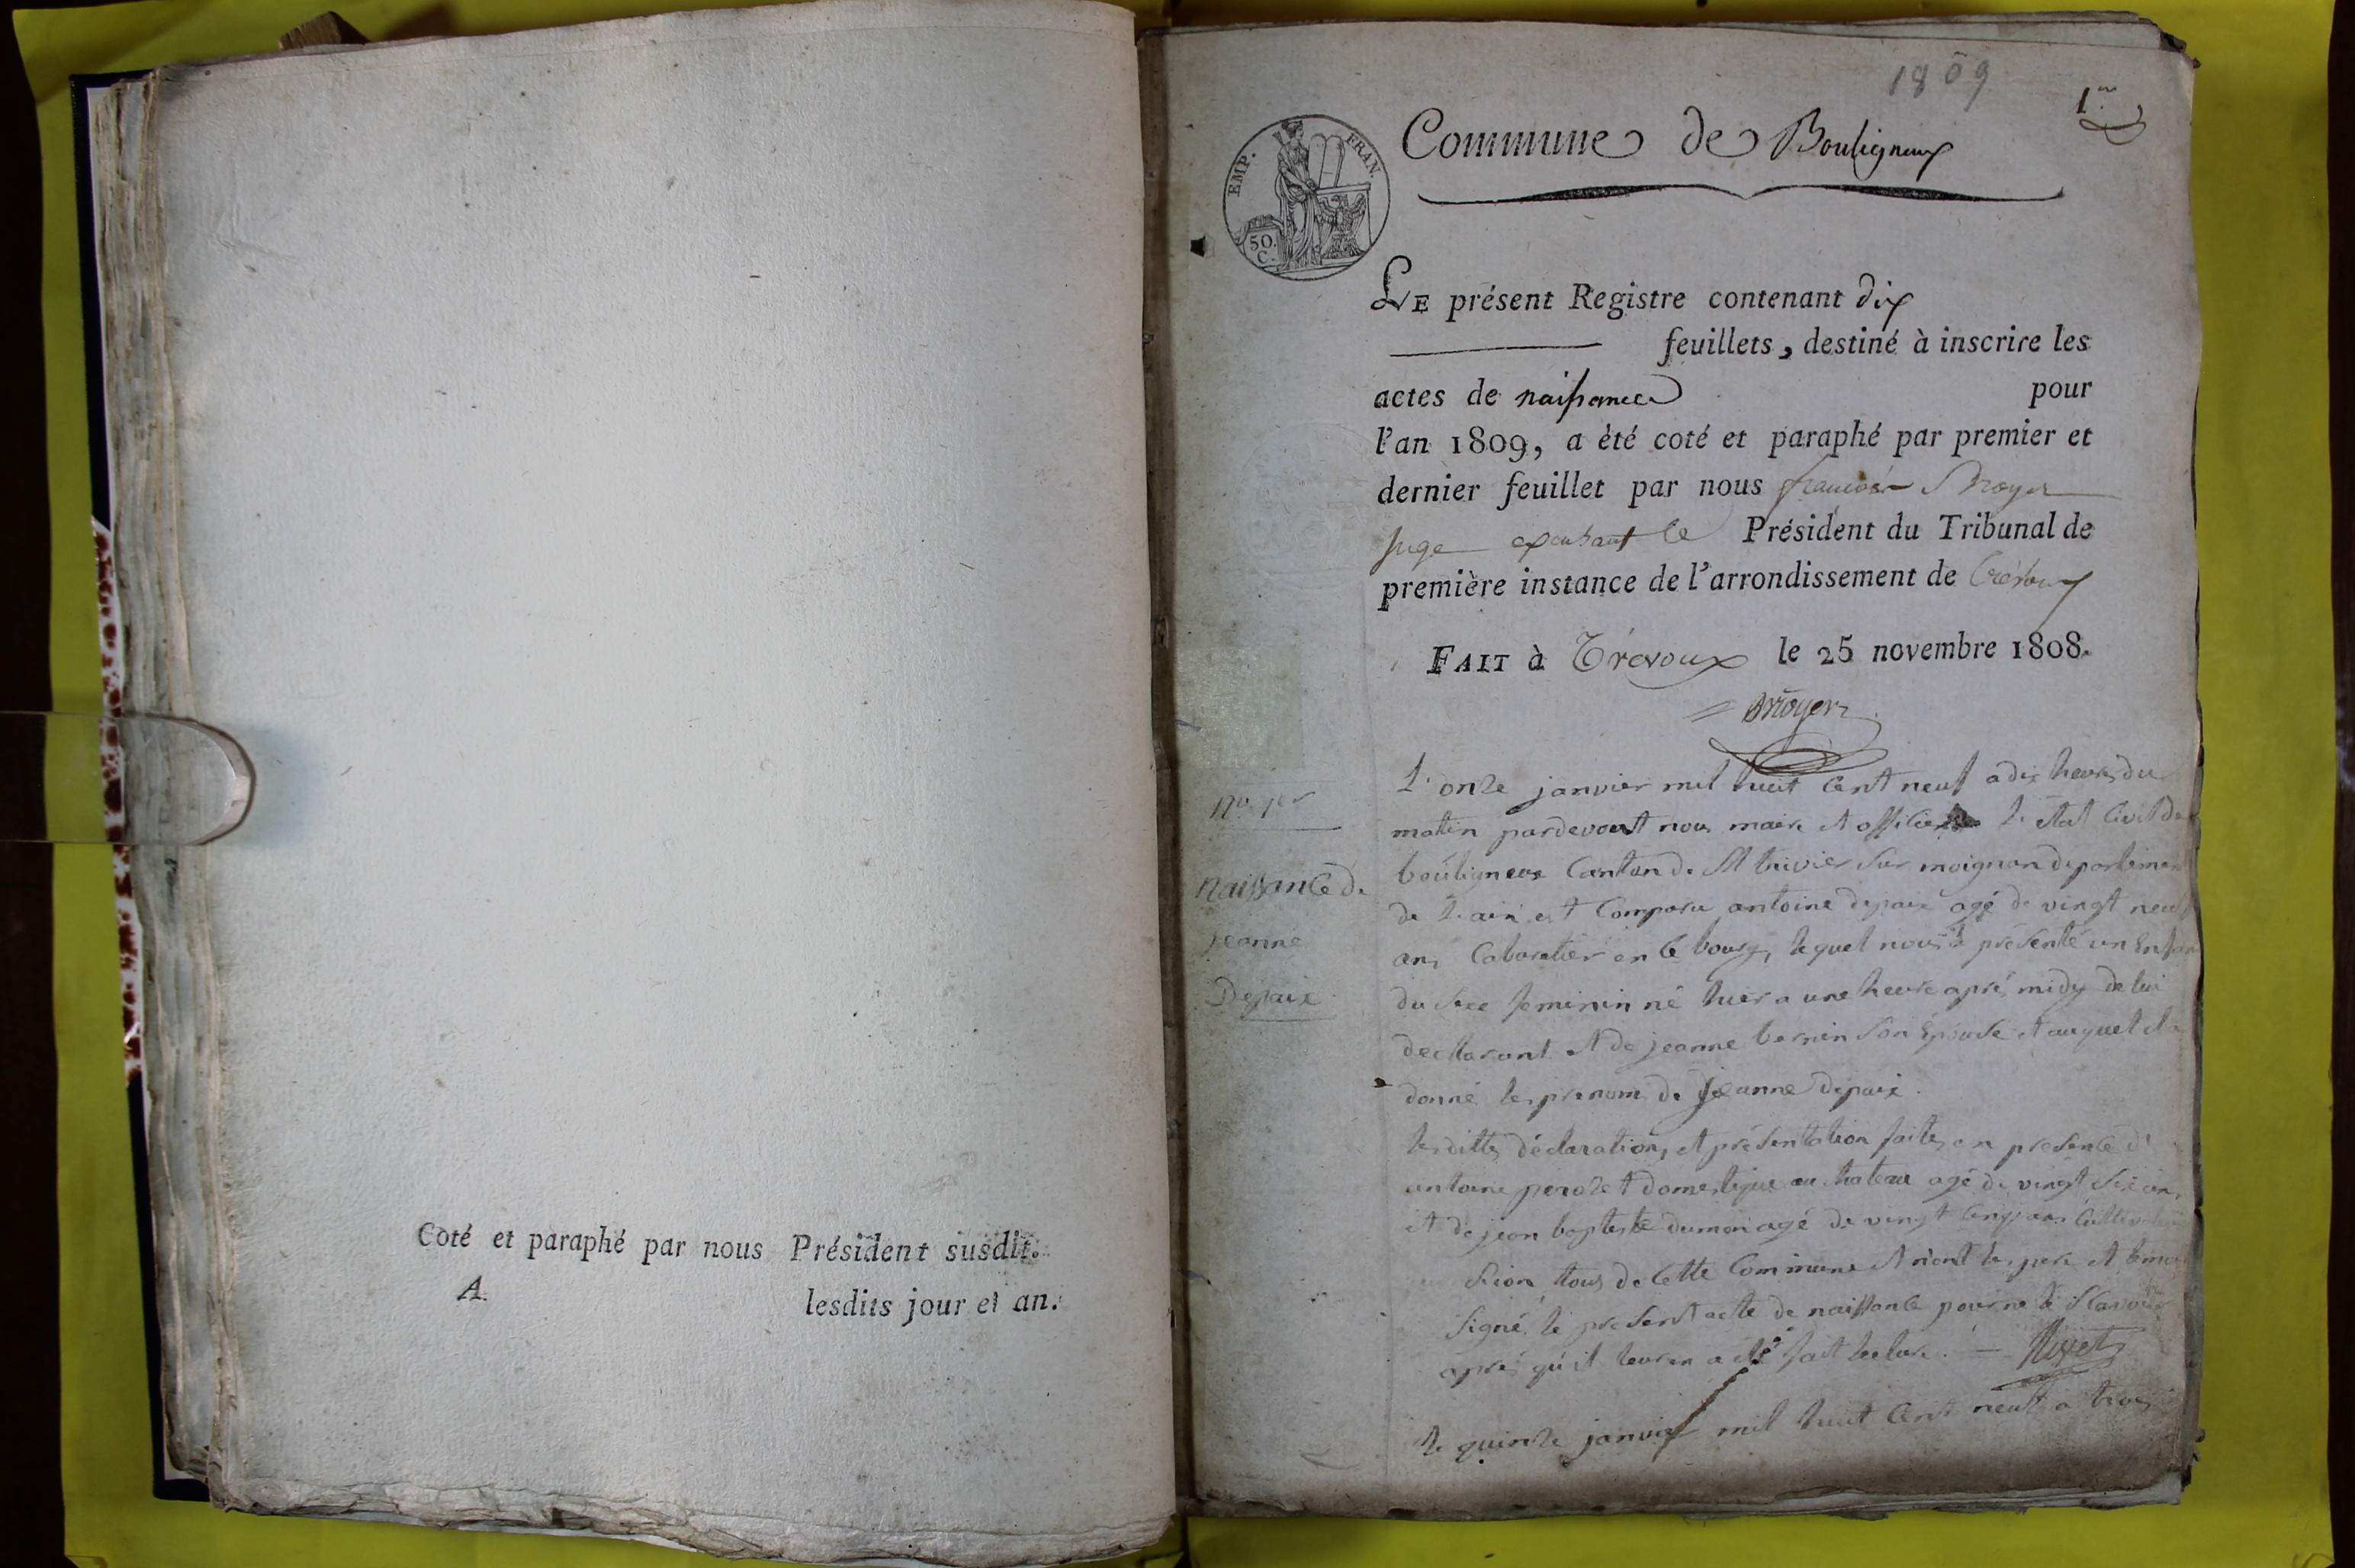 Coté et paraphé par nous Président susdit.
A
lesdits jour et an.
1809
1er
EMP. FRAN.
50.
C.
Commune de Bouligneux
LE présent Registre contenant dix
feuillets, destiné à inscrire les
actes de naissance pour
l'an 1809, a été coté et paraphé par premier et
dernier feuillet par nous françois
juge Président du Tribunal de
première instance de l'arrondissement de trévoux
FAIT à Trévoux le 25 novembre 1808.
No. 1er
Naissance de
jeanne
Depaix
L'onze janvier mil huit cent neuf a dix heures du
matin pardevant nous maire et officier de l'état civil de
bouligneux Canton de St trivier sur moignan departement
de l'ain est Comparu antoine depaix agé de vingt neuf
ans Cabaretier en ce bourg, lequel nous a présenté un Enfant
du sexe feminin né hier a une heure après midy de lui
declarant et de jeanne bernin son Epouse et auquel il a
donné les prenom de jeanne depaix.
lesdittes déclaration, et présentation faites en presence d'
antoine domestique au chateau agé de vingt six ans,
et de jean baptiste dumon agé de vingt cinq ans Cultivateur
tous de cette Commune et n'ont les pere et temoins
signé le present acte de naissance pour ne le scavoir
après qu'il leur en a été fait lecture. —
le quinze janvier mil huit cent neuf a trois